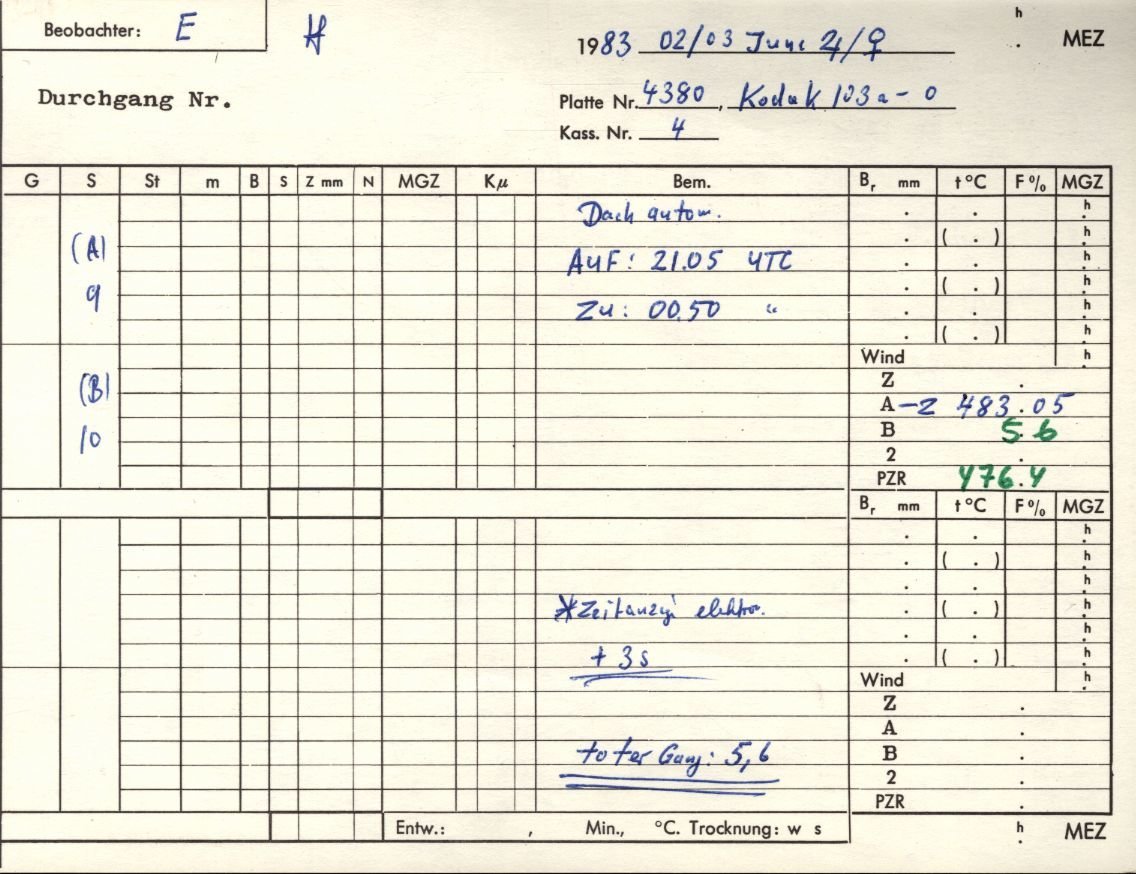 Beobachter: E
h
1983 02/03 June 24/♀ . MEZ
Durchgang Nr.
Platte Nr. 4380, Kodak 103a-0
Kass. Nr. 4
G S St m B S Z mm N MGZ Kμ Bem. Br mm t °C F % MGZ
Dach autom. . . h
(A) . ( . ) h
Auf: 21.05 UTC . . h
9 . ( . ) h
Zu: 00.50 " . . h
. ( . ) h
Wind h
(B) Z .
A -Z 483.05
10 B 5.6
2 .
PZR 476.4
Br mm t °C F % MGZ
. . h
. ( . ) h
. . h
*Zeitanzg. elektro. . ( . ) h
. . h
+ 3s . ( . ) h
Wind h
Z .
A .
toter Gang: 5,6 B .
2 .
PZR .
Entw.: , Min., °C. Trocknung: w s h . MEZ